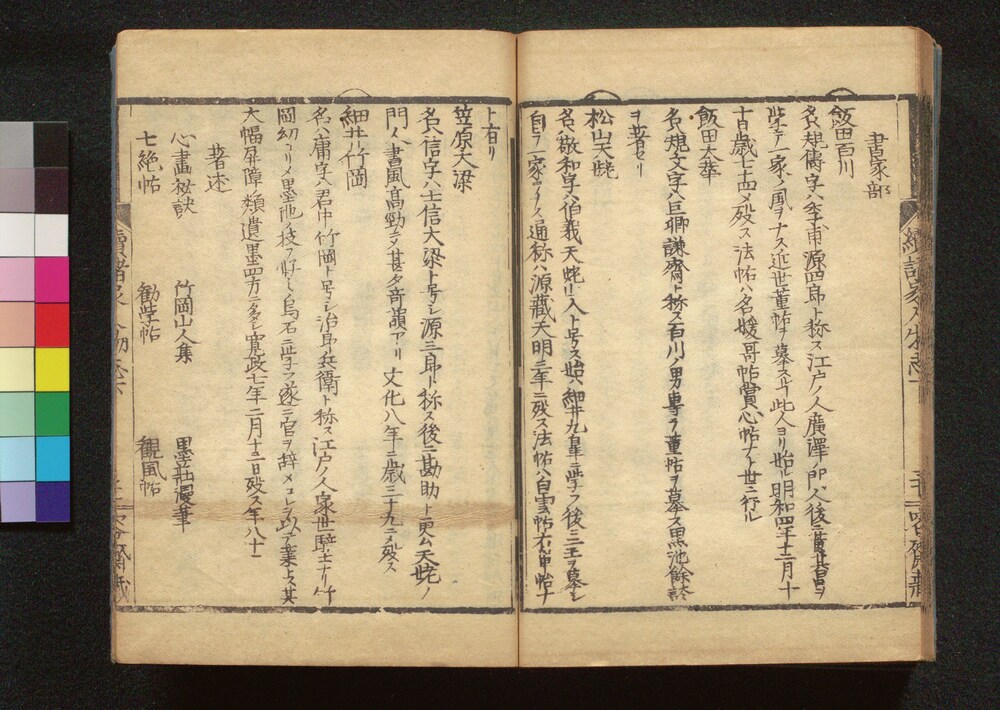 書家部
飯田百川
名ハ規儔字ハ李甫源四郎ト称ス江戸ノ人廣澤ノ門人後ニ董其昌ヲ
学テ一家ノ風ヲナス近世董帖ヲ慕スル此人ヨリ始ル明和四年十二月十
十日歳七十四ニメ殁ス法帖ハ名媛哥帖賞心帖ナト世ニ行ル
飯田太華
名ハ規文字ハ巨卿謙齋ト称ス百川ノ男専ラ董帖ヲ慕ス黒池餘談
ヲ著セリ
松山天姥
名ハ敬和字ハ伯義天姥山人ト号ス始ハ細井九皐ニ学フ後ニ三王ヲ慕ヒ
自ラ一家ヲナス通称ハ源藏天明三年ニ殁ス法帖ハ白雲帖石帖ナ
ト有リ
笠原大梁
名ハ信字ハ士信大梁ト号シ源三郎ト称ス後ニ勘助ト更ム天姥ノ
門人書風高勁ニメ甚タ奇韻アリ文化八年ニ歳三十九ニメ殁ス
細井竹岡
名ハ庸字ハ君中竹岡ト号シ治郎兵衛ト称ス江戸ノ人家世騎士ナリ竹
岡幼ヨリメ墨池ノ技ヲ好ミ烏石ニ学フ遂ニ官ヲ辞メコレヲ以テ業トス其
大幅屏障ノ類遺墨四方ニ多シ寛政七年二月十三日殁ス年八十一
著述
心畫秘訣 竹岡山人集 墨荘漫筆
七絶帖 勧学帖 観風帖
續諸家人物志